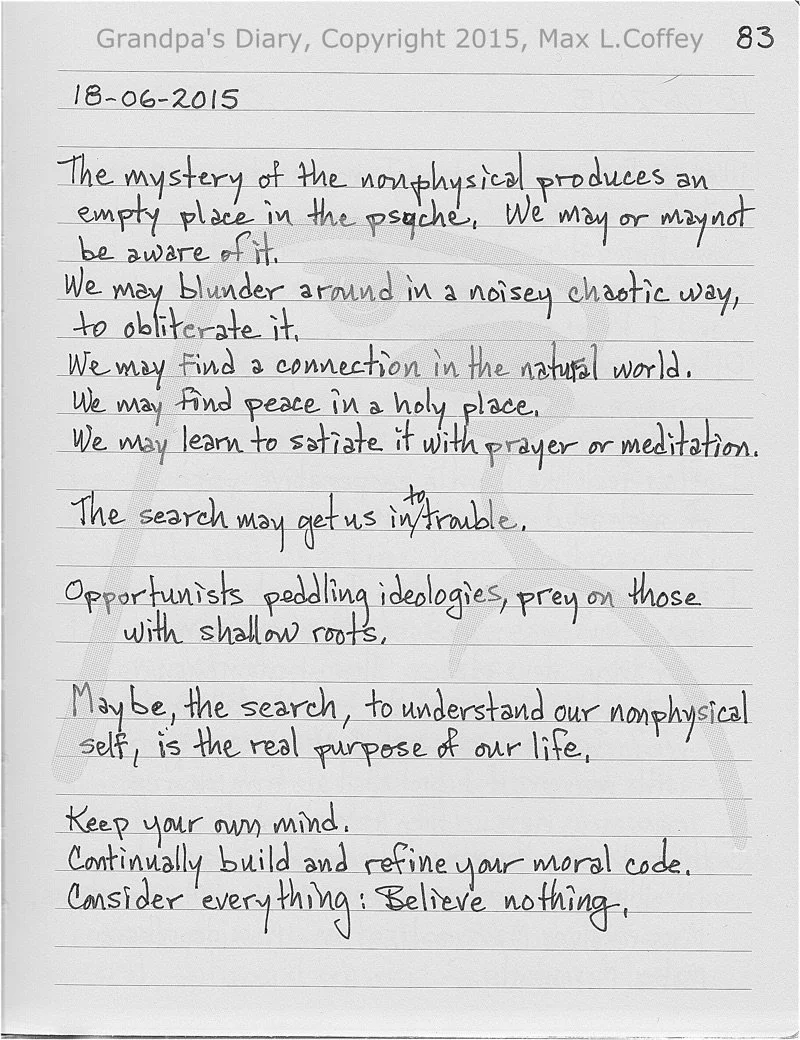 Grandpa's Diary, Copyright 2015, Max L.Coffey 83
18-06-2015
The mystery of the nonphysical produces an
empty place in the psyche. We may or maynot
be aware of it.
We may blunder around in a noisey chaotic way,
to obliterate it.
We may find a connection in the natural world.
We may find peace in a holy place.
We may learn to satiate it with prayer or meditation.
The search may get us in/to trouble.
Opportunists peddling ideologies, prey on those
with shallow roots.
Maybe, the search, to understand our nonphysical
self, is the real purpose of our life.
Keep your own mind.
Continually build and refine your moral code.
Consider everything: Believe nothing.